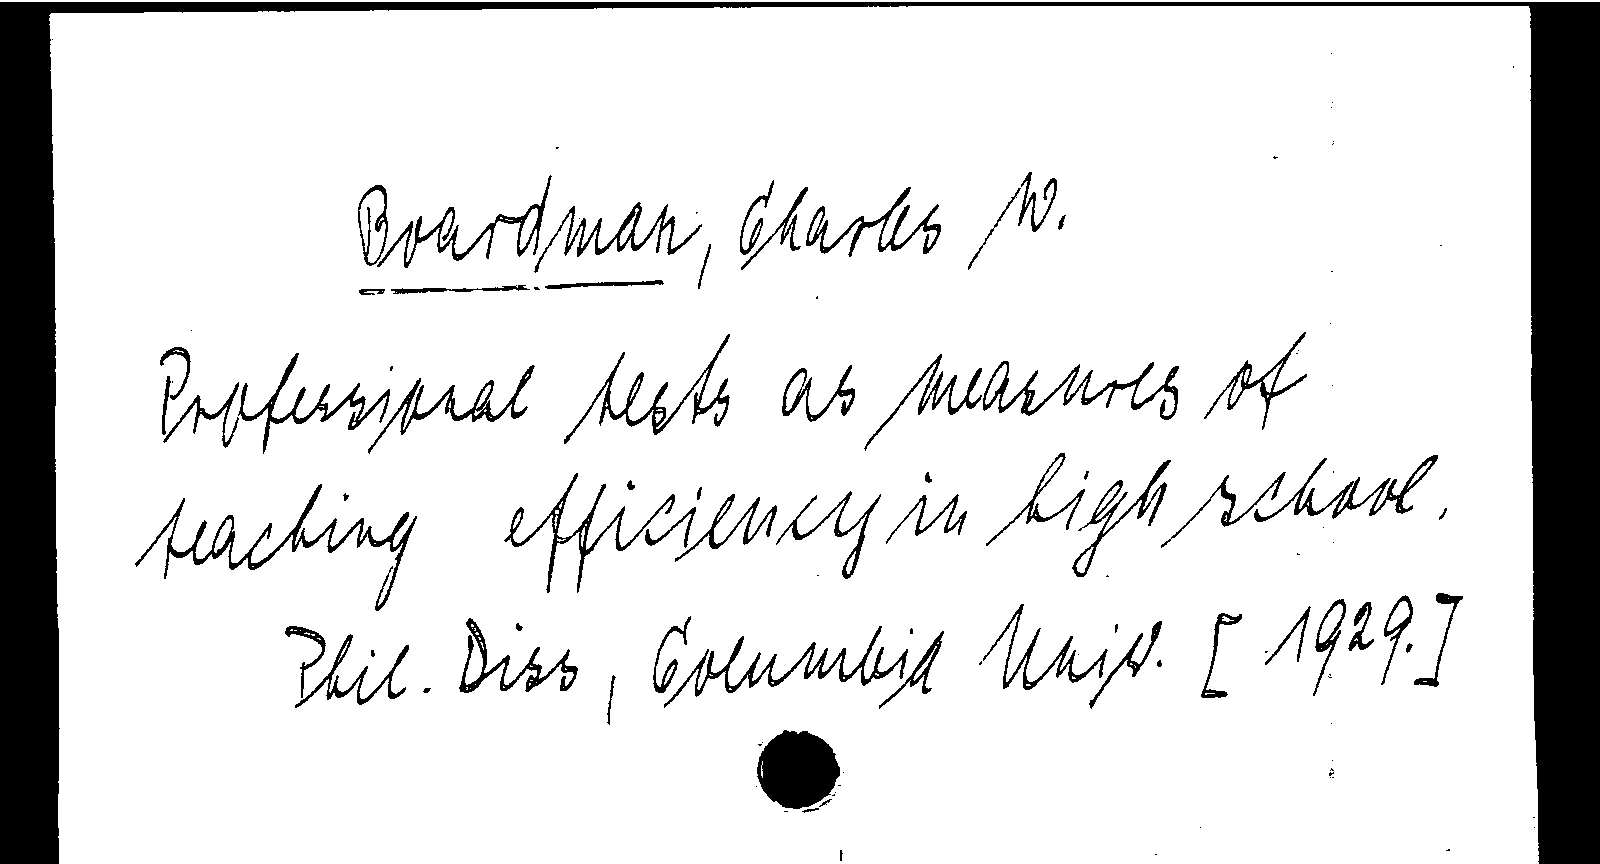 Boardman, Charles W.
Professional tests as measures of
teaching efficiency in high school.
Phil. Diss, Columbia Univ. [1929.]